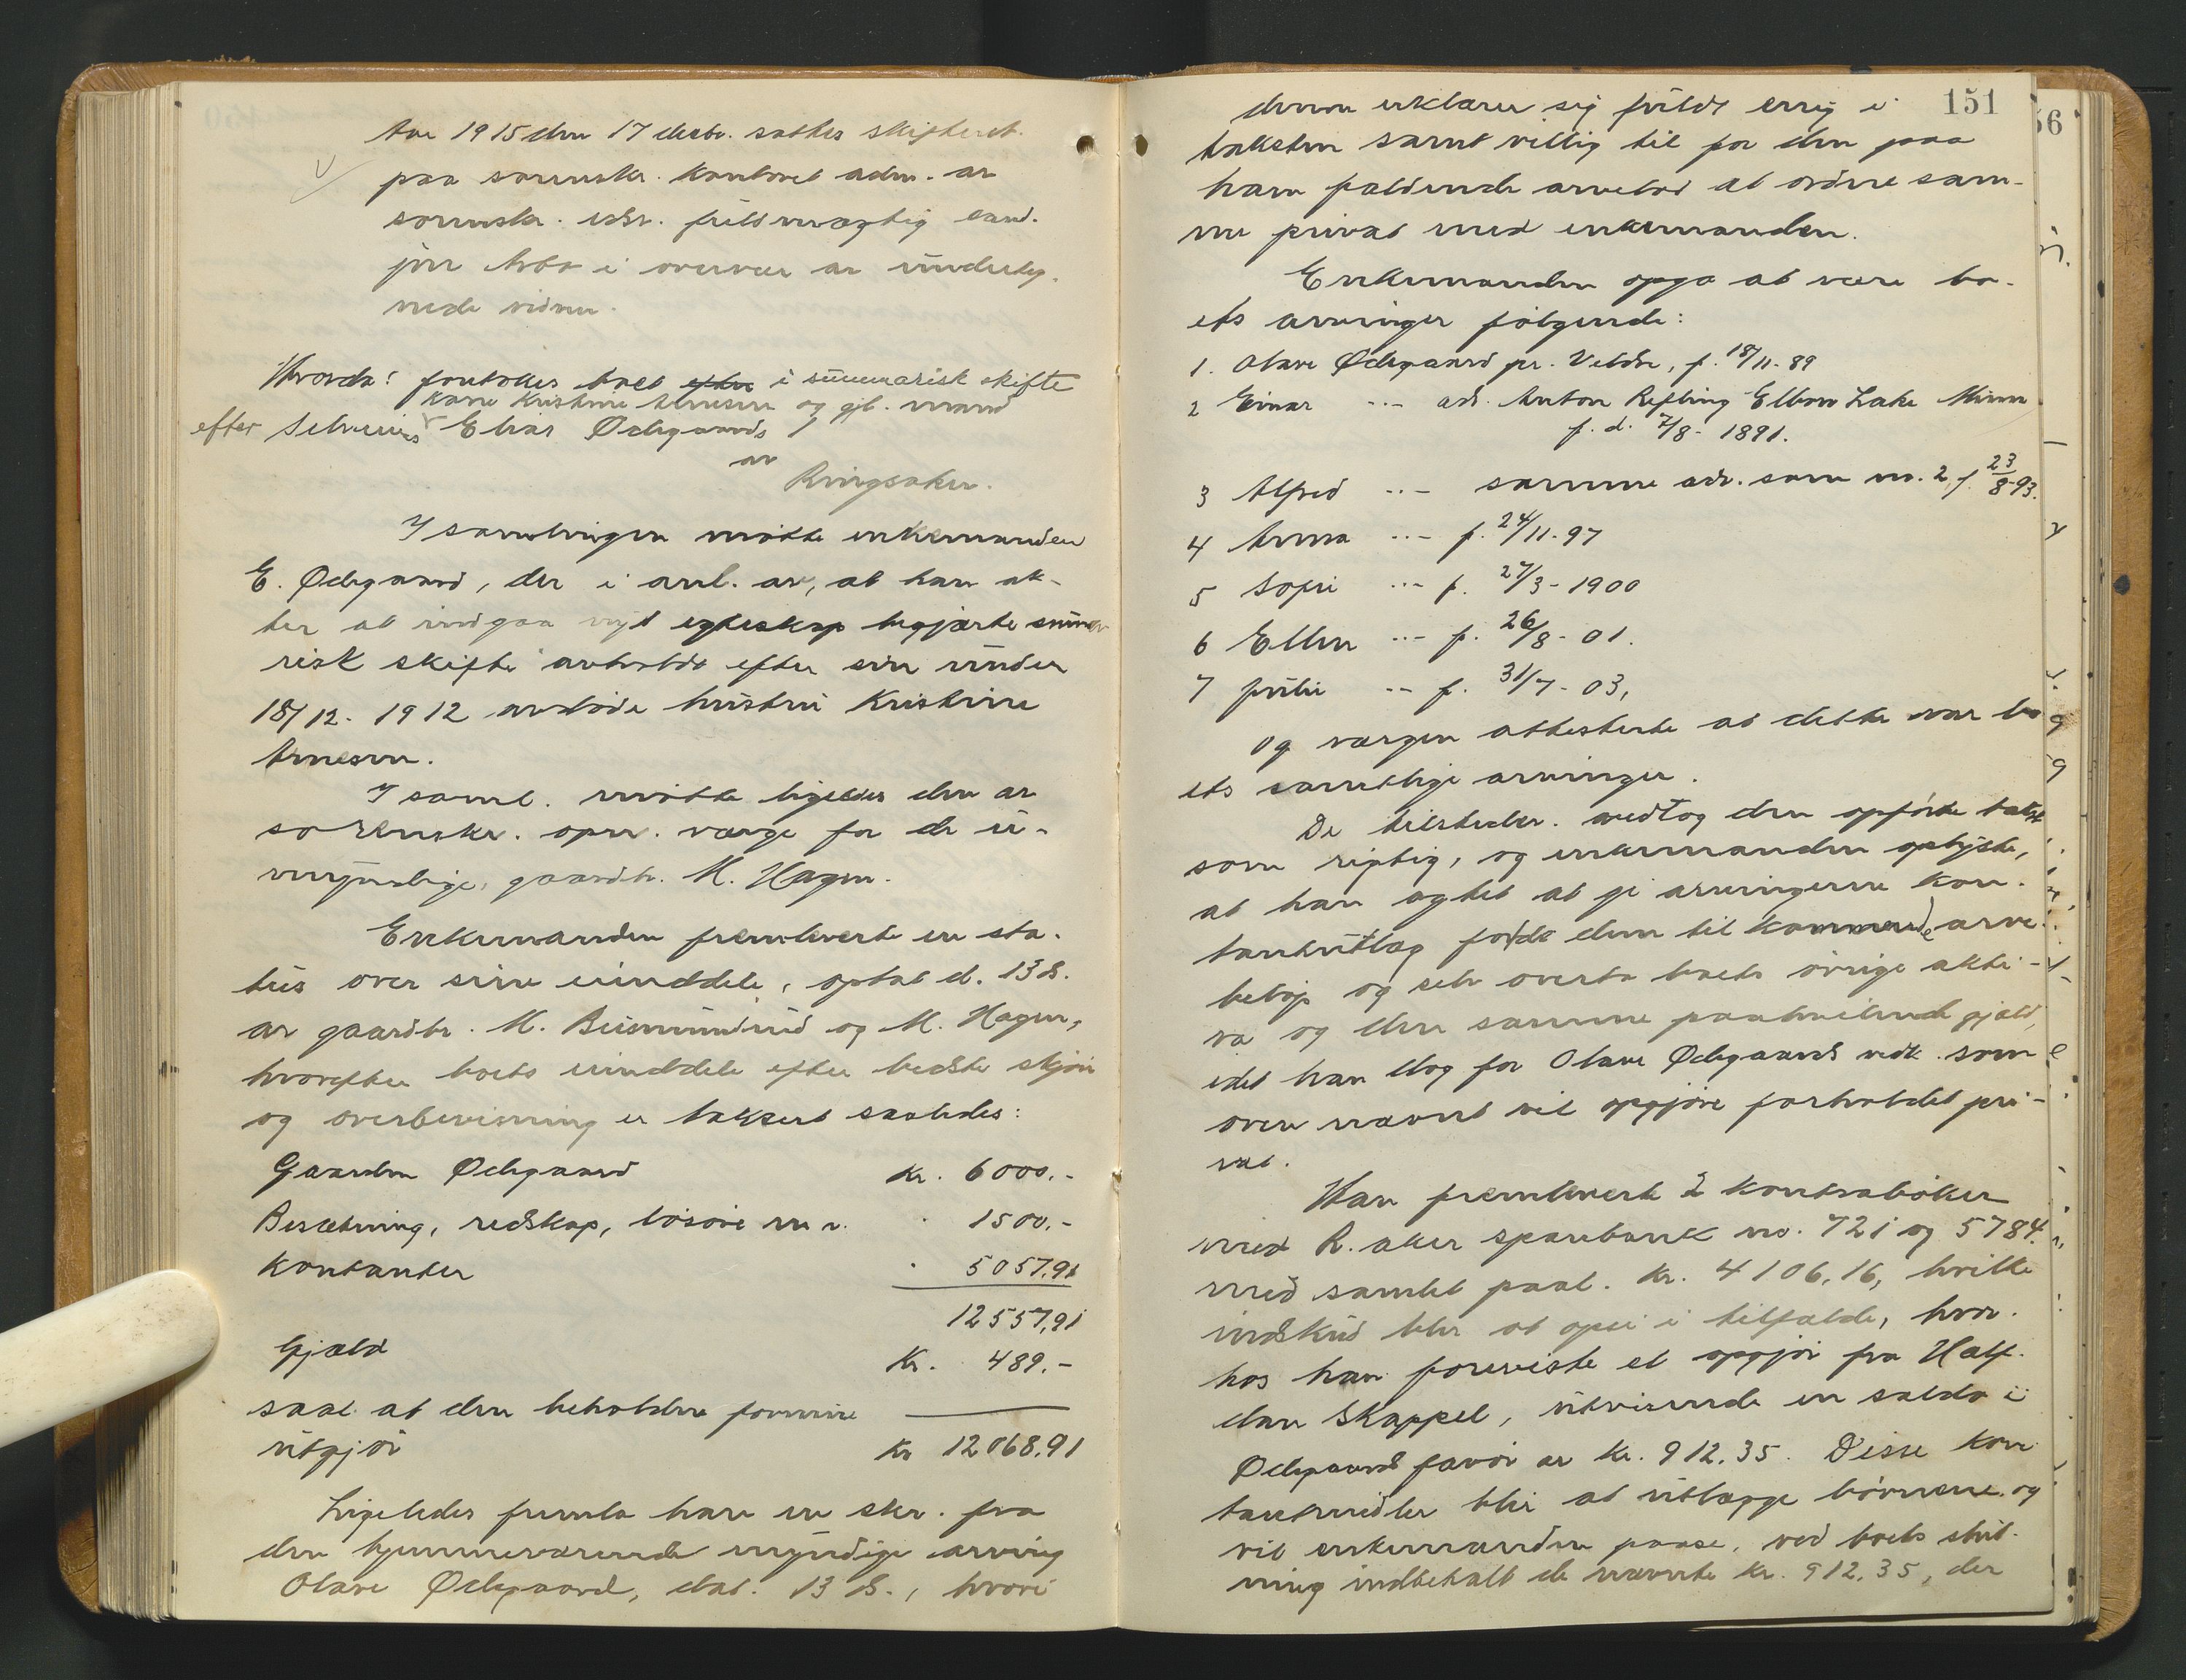 Aar 1915 den 17 decbr. sattes skifteret
paa sorenskr. kontoret adm. av
sorenskr. edsv. fuldmægtig cand.
jur i overvær av underteg-
nede vidner.
Hvorda: foretokes boet efter i summarisk skifte
Karen Kristine Arnesen og gjl. mand
efter Elias Ødegaards
av
Ringsaker.
I samlingen møtte enkemanden
E. Ødegaard, der i anl. av, at han ak-
ter at indgaa nyt egteskap begjærte summa
risk skifte avholdt efter sin under
18/12. 1912 avdøde hustru Kristine
Arnesen.
I saml. møtte ligeledes den av
sorenskr. opn. værge for de u-
myndige, gaardbr. M. Hagen.
Enkemanden fremleverte en sta-
tus over sine eiendele, optat d. 13 ds.
av gaardbr. M. Busmundrud og M. Hagen,
hvorefter boets eiendele efter bedste skjøn
og overbevisning er taksert saaledes:
Gaarden Ødegaard Kr. 6000.-
Besætning, redskap, løsøre m v. " 1500.-
Kontanter " 5057,91
12557,91
Gjæld Kr. 489.-
saal. at den beholdne formue
utgjør Kr 12068.91
Ligeledes fremla han en skr. fra
den hjemmeværende myndige arving
Olave Ødegaard, dat. 13 ds., hvori
151
56
denne erklærer sig fuldt enig i
taksten samt villig til for den paa
ham faldende arvelod at ordne sam-
me privat med enkemanden.
Enkemanden opga at være bo-
ets arvinger følgende:
1. Olave Ødegaard pr. Veldre, f. 18/11-89
2 Einar --- adr. Anton Refling Elbow Lake Minn
f. d. 7/8- 1891.
3 Alfred --- samme adr. som no. 2, f. 23/8-93.
4 Anna --- f. 24/11-97
5 Sofie --- f. 27/3-1900
6 Ellen --- f. 26/8-01.
7 Julie -- f. 31/7-03,
og værgen attesterte at dette var bo
ets samtlige arvinger.
De tilstedev. vedtog den opførte takst
som rigtig, og enkemanden oplyste,
at han agtet at gi arvingerne kon-
tantutlæg for de dem tilkommende arve-
beløp og selv overta boets øvrige akti-
va og den samme paahvilende gjæld,
idet han dog for Olave Ødegaards vedk. som
oven nævnt vil opgjøre forholdet pri-
vat.
Han fremleverte 2 kontrabøker
med R.aker sparebank no. 721 og 5784
med samlet paal. kr. 4106,16, hvilke
indskud blir at opsi i tilfælde, hvor-
hos han foreviste et opgjør fra Half-
dan Skappel, utvisende en saldo i
Ødegaards favør av kr. 912.35. Disse kon
tantmidler blir at utlægge børnene, og
vil enkemanden paase, ved boets slut-
ning indbetalt de nævnte kr. 912.35, der